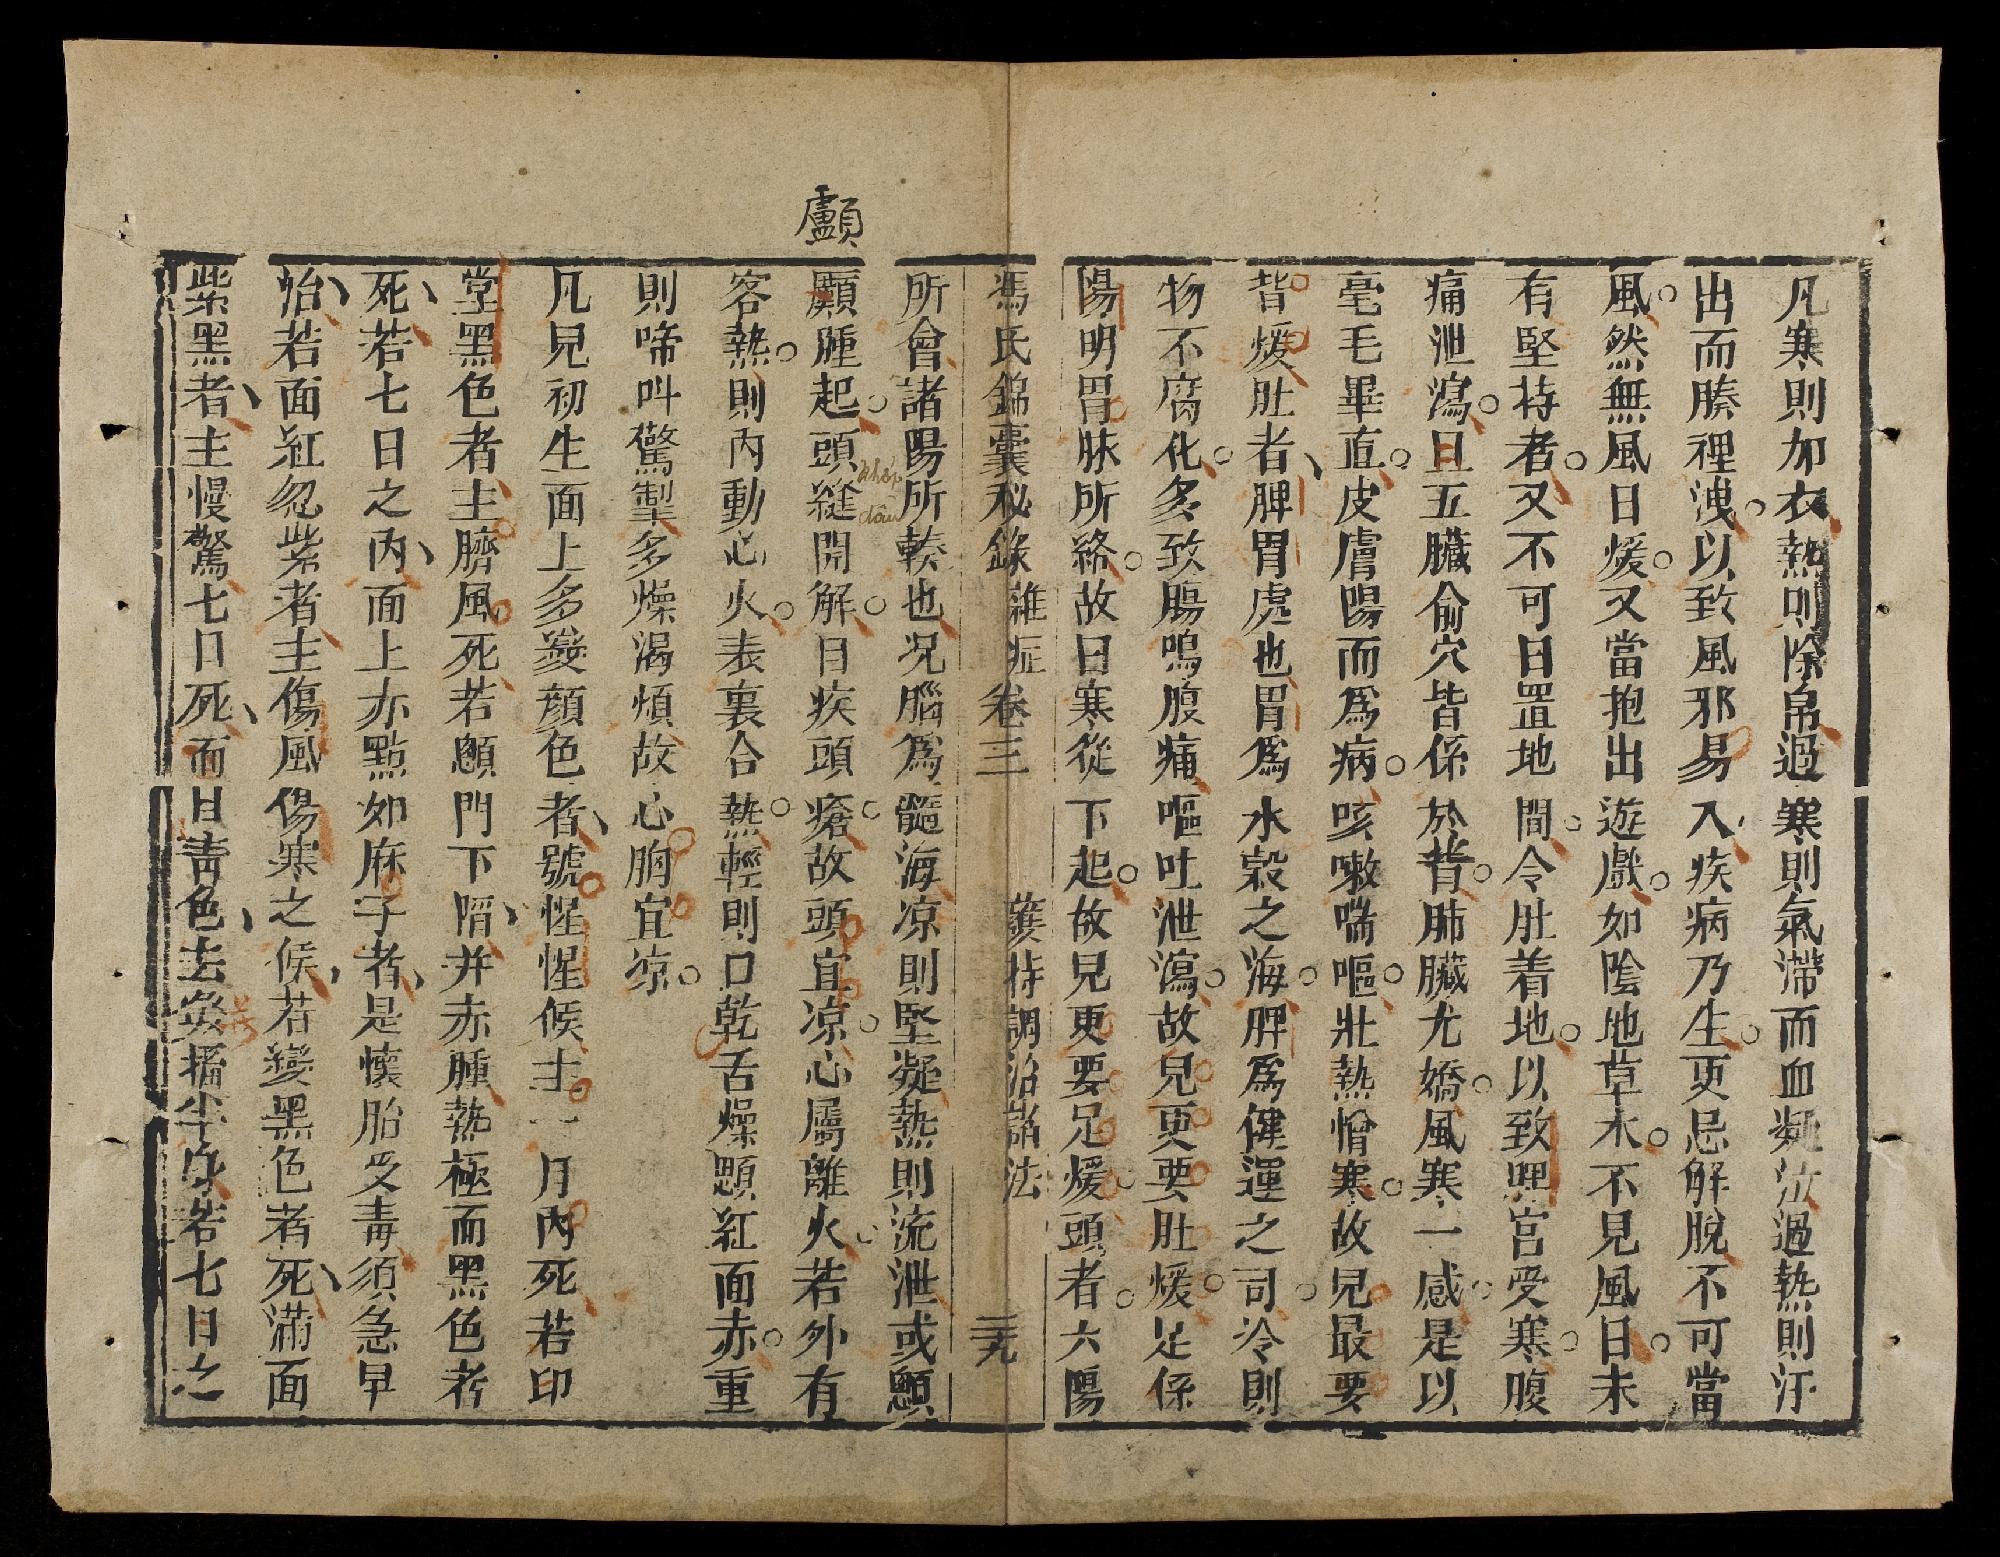 凡寒則加衣熱則除帛過寒則氣滯而血凝泣過熱則汗
出而腠裡洩以致風邪易入疾病乃生更忌解脫不可當
風然無風日煖又當抱出遊戲如陰地草木不見風日未
有堅持者又不可日置地間令肚着地以致脾宮受寒腹
痛泄瀉且五臟俞穴皆係於背肺臟尤嬌風寒一感是以
毫毛畢直皮膚陽而為病咳嗽喘嘔壯熱憎寒故兒最要
背煖肚者脾胃處也胃為水穀之海脾為健運之司冷則
物不腐化多致腸鳴腹痛嘔吐泄瀉故兒更要肚煖足係
陽明胃脉所絡故曰寒從下起故兒更要足煖頭者六陽
馮氏錦囊秘錄 雜症 卷三 護持調治諸法 三九
所會諸陽所輳也況腦為髓海凉則堅凝熱則流泄或顖
顱
顱腫起頭縫開解目疾頭瘡故頭宜凉心屬離火若外有
khớp đầu
客熱則內動心火表裏合熱輕則口乾舌燥顋紅面赤重
則啼叫驚掣多燥渴煩故心胸宜凉
凡見初生面上多變顏色者號惺惺候主一月內死若印
堂黑色者主臍風死若顖門下陷并赤腫熱極而黑色者
死若七日之內面上赤點如麻子者是懷胎受毒須急早
治若面紅忽紫者主傷風傷寒之候若變黑色者死滿面
紫黑者主慢驚七日死面目青色去
若七日之